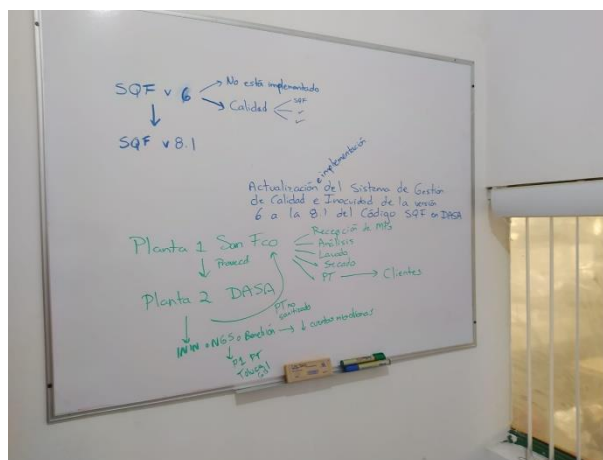 SQF v 6
No está implementado
Calidad
SQF
SQF v 8.1
e implementación
Actualización del Sistema de Gestión
de Calidad e Inocuidad de la versión
6 a la 8.1 del Código SQF en DASA
Planta 1 San Fco
Recepción de MPs
Análisis
Lavado
Secado
PT
Clientes
Planta 2 DASA
PT no
ININ o NGS o
P1 PT